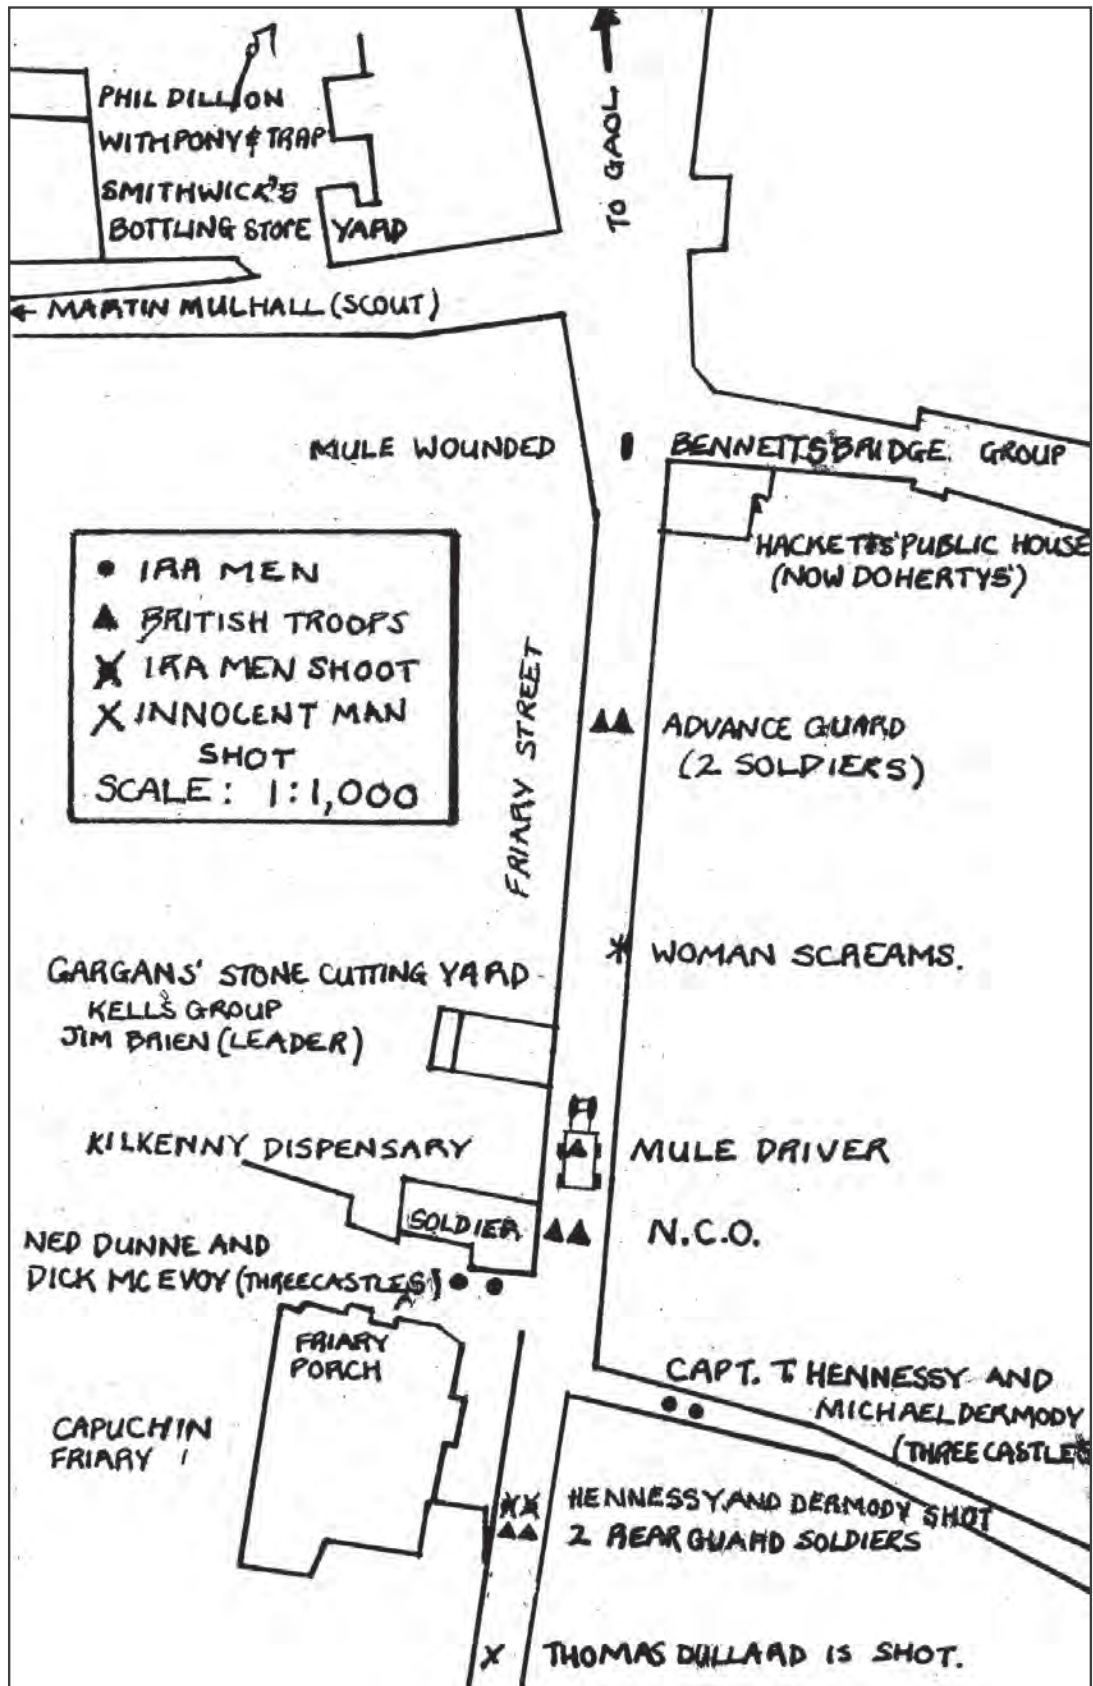 PHIL DILLON
WITH PONY & TRAP
SMITHWICK'S
BOTTLING STORE YARD
TO GAOL
← MARTIN MULHALL (SCOUT)
MULE WOUNDED
BENNETTSBRIDGE. GROUP
HACKETTS' PUBLIC HOUSE
(NOW DOHERTYS')
IRA MEN
BRITISH TROOPS
IRA MEN SHOOT
INNOCENT MAN
SHOT
SCALE: 1:1,000
FRIARY STREET
ADVANCE GUARD
(2 SOLDIERS)
WOMAN SCREAMS.
GARGANS' STONE CUTTING YARD
KELLS GROUP
JIM BRIEN (LEADER)
KILKENNY DISPENSARY
MULE DRIVER
SOLDIER
N.C.O.
NED DUNNE AND
DICK MC EVOY (THREECASTLES)
FRIARY
PORCH
CAPUCHIN
FRIARY
CAPT. T. HENNESSY AND
MICHAEL DERMODY
(THREECASTLES
HENNESSY AND DERMODY SHOT
2 REAR GUARD SOLDIERS
THOMAS DULLARD IS SHOT.